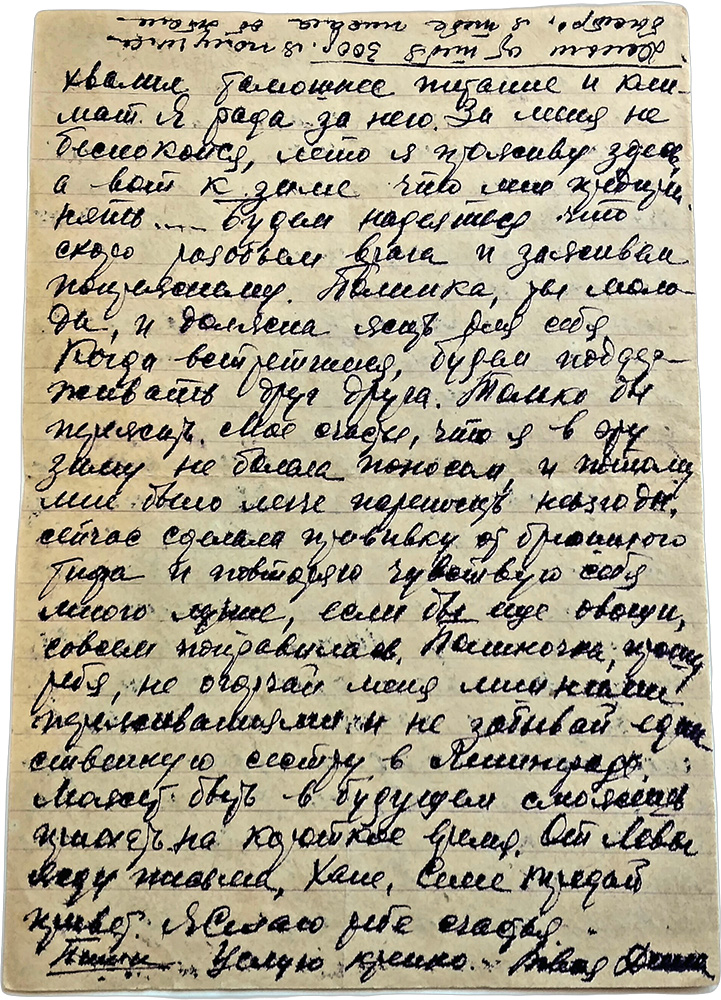 Деньги от тебя 300 р. я получила
быстро, я тебе писала об этом
хвалил тамошнее питание и кли-
мат. Я рада за него. За меня не
беспокойся, лето я проживу здесь,
а вот к зиме что мне предпри-
нять.... Будем надеятся что
скоро разобьем врага и заживем
попрежнему. Полинка, ты моло-
да, и должна жить для себя
Когда встретимся, будем поддер-
живать друг друга. Только бы
пережить. Мое счастье, что я в эту
зиму не болела поносом, и потому
мне было легче переносить невзгоды.
сейчас сделала прививку от брюшного
тифа и повторяю чувствую себя
много лучше, если бы еще овощи,
совсем поправилась. Полиночка, прошу
тебя, не огорчай меня лишними
переживаниями и не забывай един
ственную сестру в Ленинграде.
Может быть в будущем сможешь
приехать на короткое время. От Левы
жду письма, Хане, Семе передай
привет. Желаю тебе счастья.
Пиши Целую крепко. Твоя